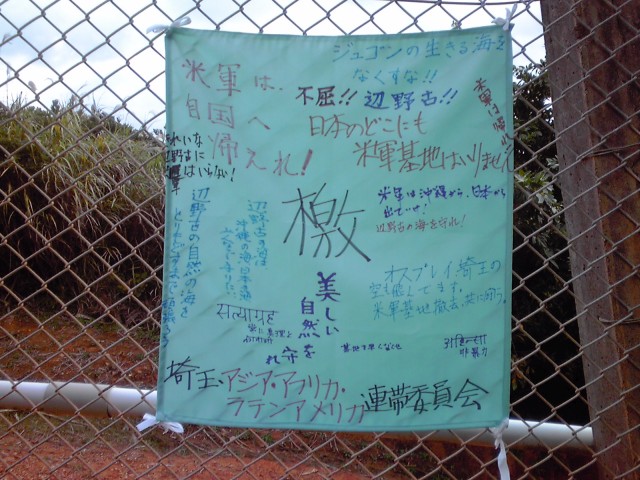 ジュゴンの生きる海を
なくすな!!
米軍は、
自国へ
帰えれ!
不屈!! 辺野古!!
日本のどこにも
米軍基地はいりません
きれいな
辺野古に
はいらない!
檄
米軍は沖縄から、日本から
出ていけ!
辺野古の海を守れ!
辺野古の自然の海を
辺野古の海は
沖縄の海、日本の海
美しい
自然
を守
れ
オスプレイ埼玉の
空も飛んでます。
米軍基地撤去、共に闘う。
सत्याग्रह
非暴力
埼玉・アジア・アフリカ・
ラテンアメリカ連帯委員会